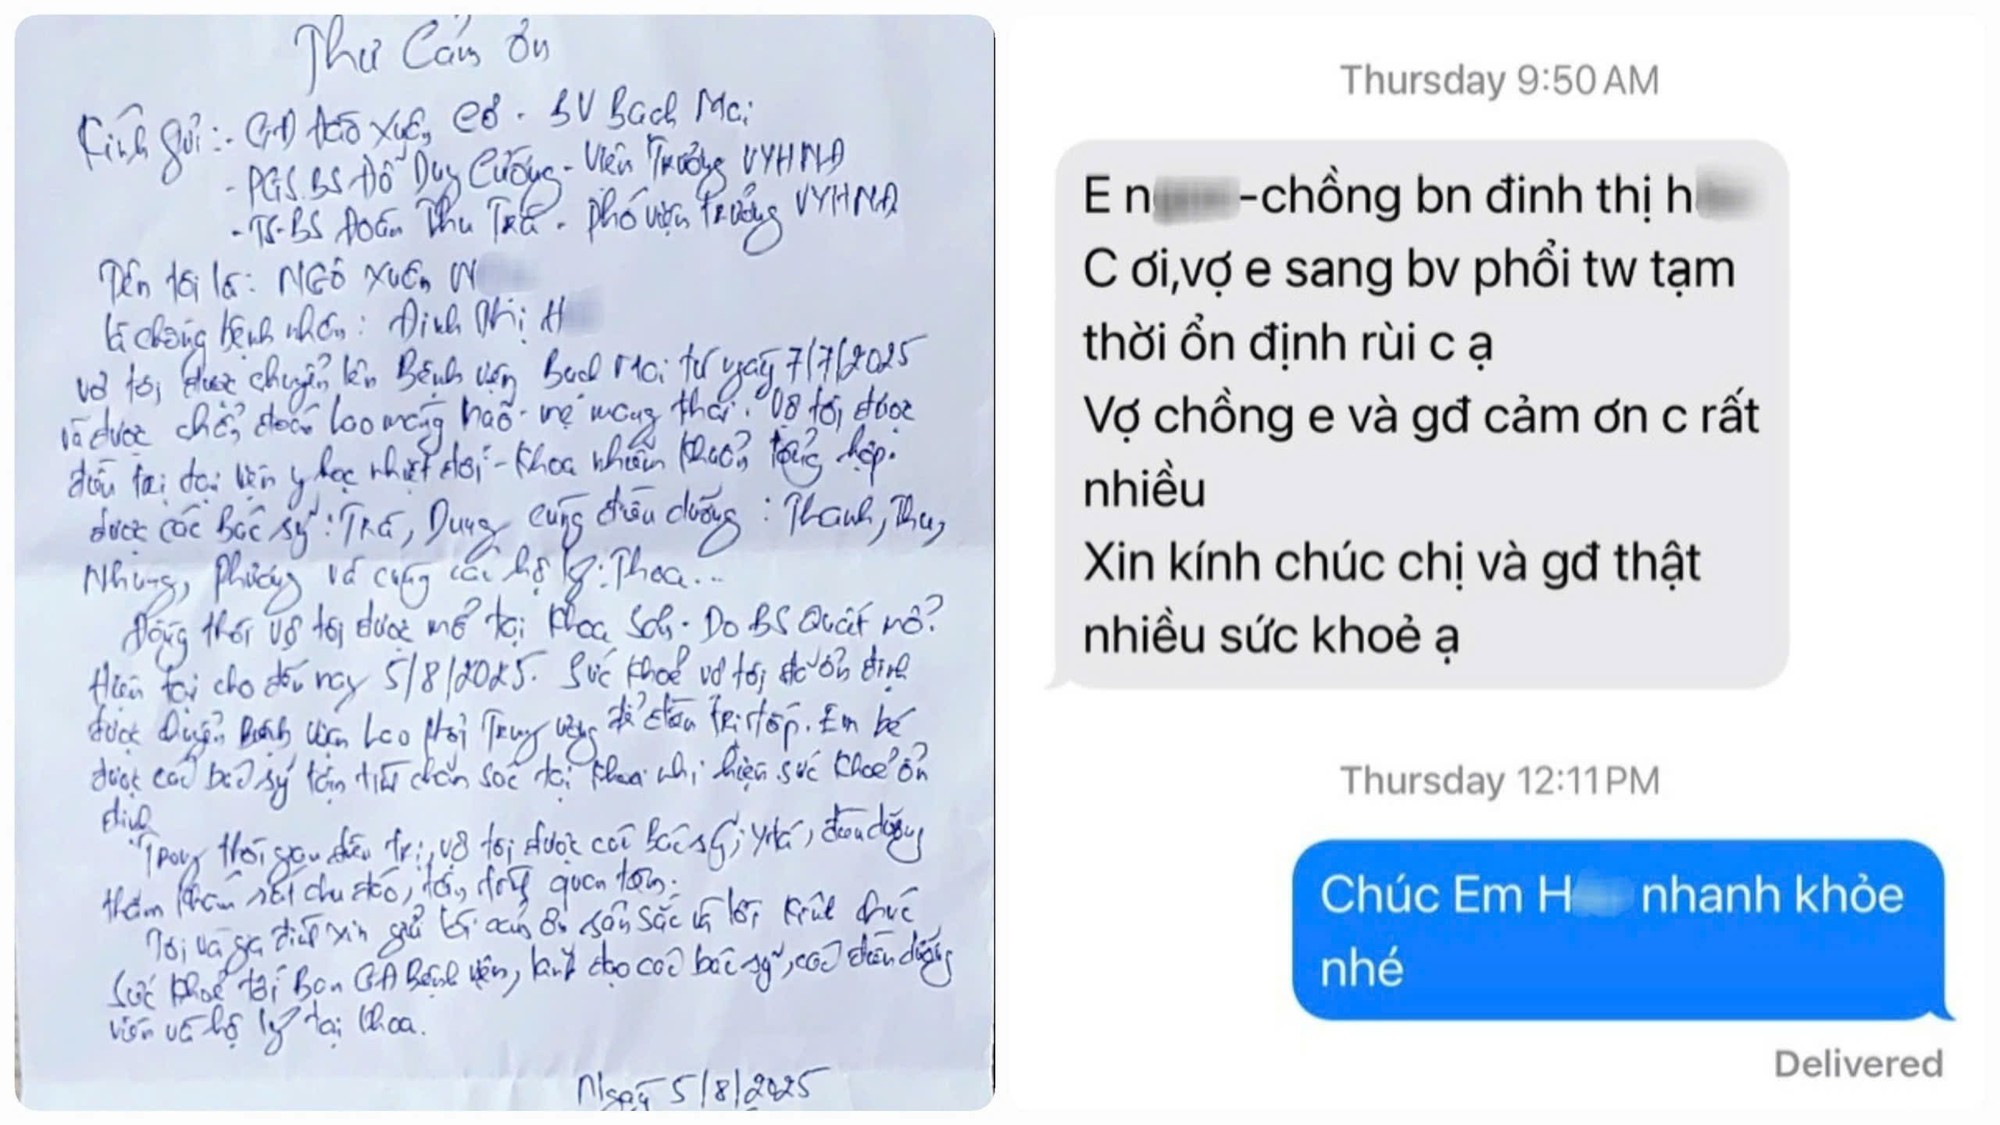 Thư Cảm Ơn
Kính gửi: - GĐ Đào Xuân Cơ - BV Bạch Mai
- PGS.BS Đỗ Duy Cường - Viện Trưởng VYHNĐ
- TS-BS Đoàn Thu Trà - Phó viện trưởng VYHNĐ
Tên tôi là: NGÔ XUÂN N
là chồng bệnh nhân: Đinh Thị H
vợ tôi được chuyển lên Bệnh viện Bạch Mai từ ngày 7/7/2025
và được chẩn đoán lao màng não - mẹ mang thai. Vợ tôi được
điều trị tại viện y học nhiệt đới - Khoa nhiễm khuẩn tổng hợp.
được các bác sỹ: Trà, Dung cùng điều dưỡng: Thanh, Thu,
Nhung, Phương và cùng các hộ lý: Thoa...
Đồng thời vợ tôi được mổ tại khoa Sản - Do BS Quát mổ?
Hiện tại cho đến nay 5/8/2025. Sức khoẻ vợ tôi đã ổn định
được chuyển Bệnh viện Lao Phổi Trung ương để điều trị tiếp. Em bé
được các bác sỹ tận tình chăm sóc tại khoa nhi, hiện sức khoẻ ổn
định
Trong thời gian điều trị, vợ tôi được các bác sĩ, y tá, điều dưỡng
thăm khám rất chu đáo, tận tình quan tâm.
Tôi và gia đình xin gửi lời cảm ơn sâu sắc và lời kính chúc
sức khoẻ tới Ban GĐ Bệnh viện, lãnh đạo các bác sỹ, các điều dưỡng
viên và hộ lý tại khoa.
Ngày 5/8/2025
Thursday 9:50 AM
E n -chồng bn đinh thị h
C ơi,vợ e sang bv phổi tw tạm
thời ổn định rùi c ạ
Vợ chồng e và gđ cảm ơn c rất
nhiều
Xin kính chúc chị và gđ thật
nhiều sức khoẻ ạ
Thursday 12:11 PM
Chúc Em H nhanh khỏe
nhé
Delivered